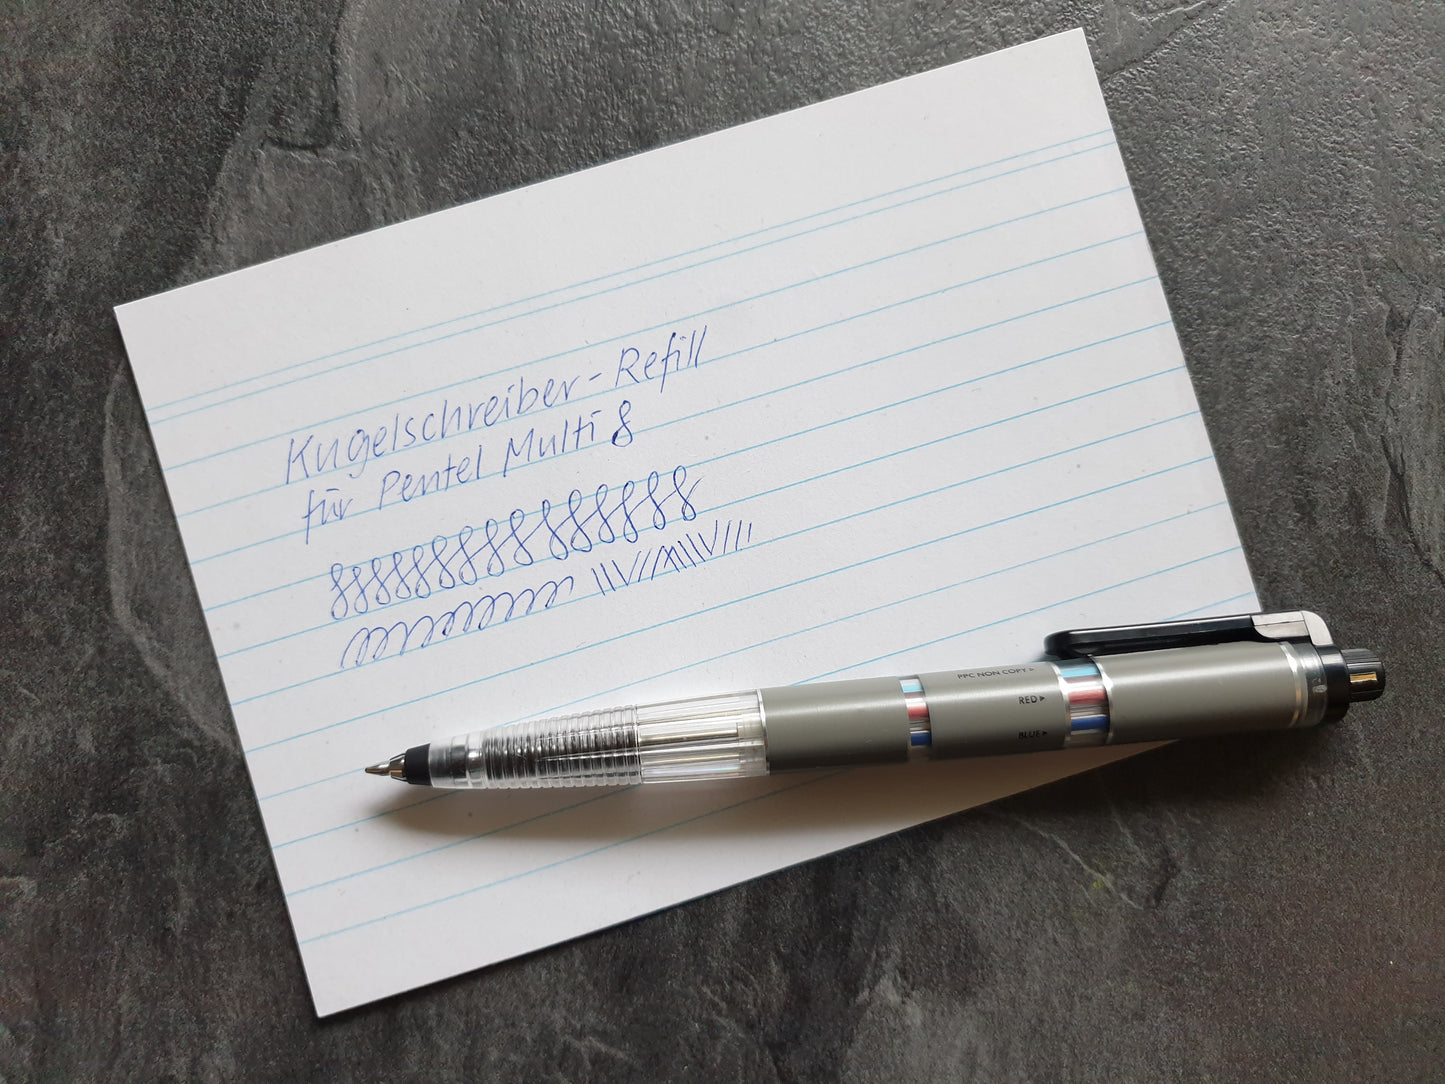 Kugelschreiber-Refill
für Pentel Multi 8
PPC NON COPY
RED
BLUE